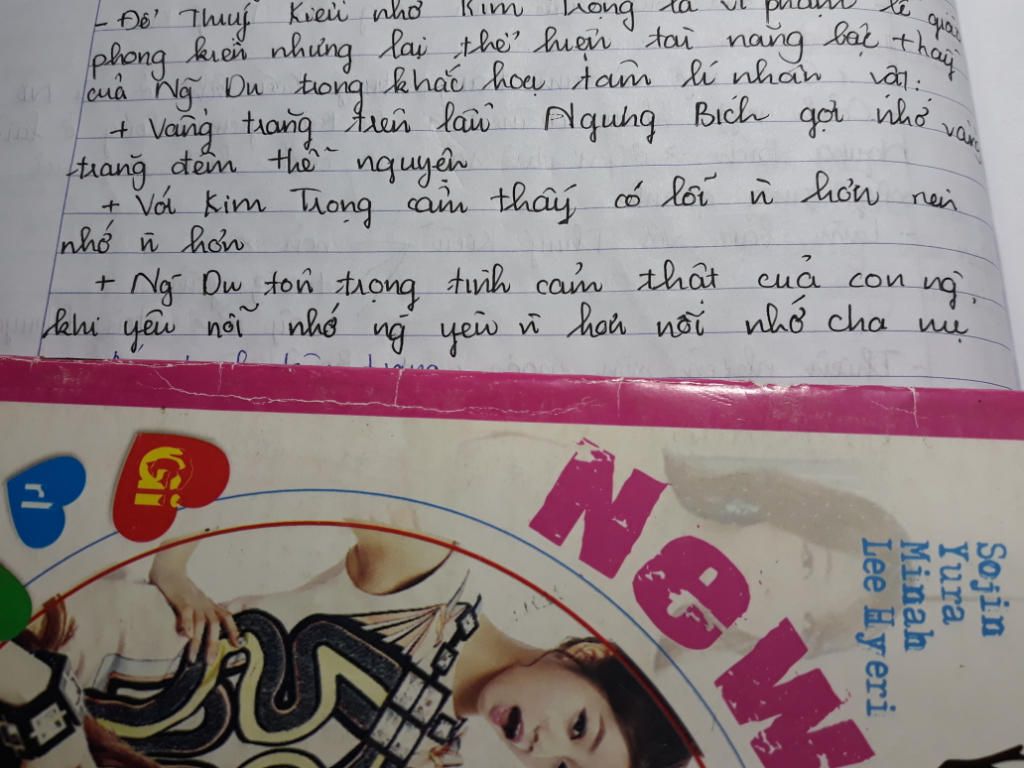 - Để Thuý Kiều nhớ Kim Trọng là vi phạm lễ giáo
phong kiến nhưng lại thể hiện tài năng bậc thầy
của Ng̃ Du trong khắc hoạ tâm lí nhân vật:
+ Vầng trăng trên lầu Ngưng Bích gợi nhớ vầng
trăng đêm thề nguyền
+ Với Kim Trọng cảm thấy có lỗi n̄ hơn nên
nhớ n̄ hơn
+ Ng̃ Du tôn trọng tình cảm thật của con ng̀,
khi yêu nỗi nhớ ng̀ yêu n̄ hơn nỗi nhớ cha mẹ
Gi
rl
NOW
Sojin
Yura
Minah
Lee Hyeri